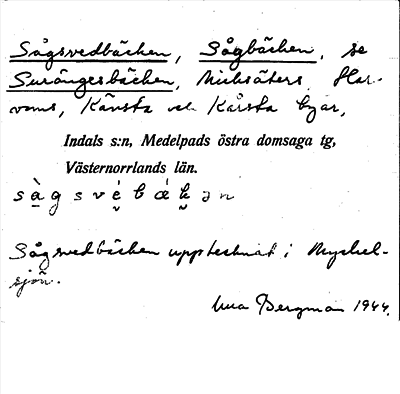 Sågsvedbäcken, Sågbäcken, se
Surängesbäcken, Nicksäters, Har-
voms, Kävsta och Kårsta byar,
Indals s:n, Medelpads östra domsaga tg,
Västernorrlands län.
sà̱gsvé̯bák̯ən
Sågsvedbäcken upptecknat i Myckel-
sjön.
Una Bergman 1944.